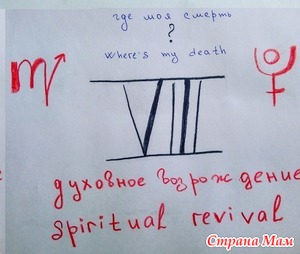 где моя смерть
?
where's my death
VIII
духовное возрождение
spiritual revival
Страна Мам